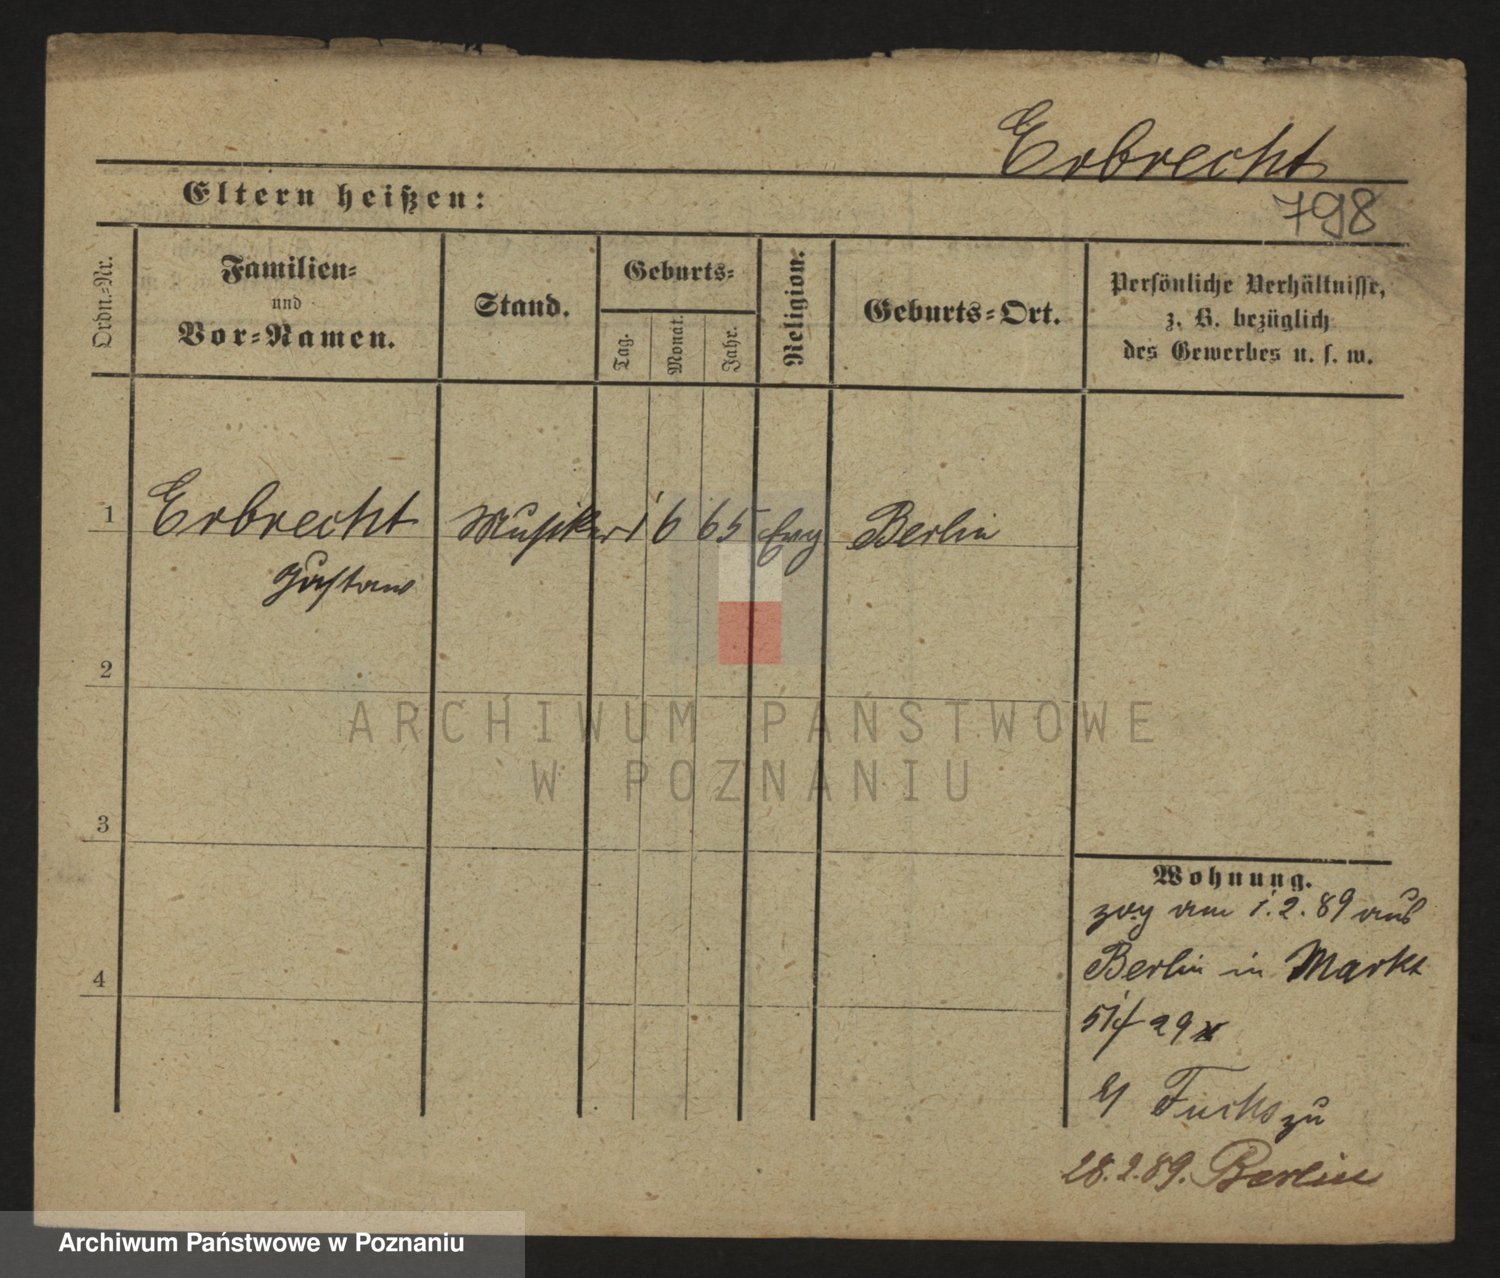 Erbrecht
798
Eltern heißen:
Ordn.-Nr.
Familien-
und
Vor-Namen.
Stand.
Geburts-
Tag.
Monat.
Jahr.
Religion.
Geburts-Ort.
Persönliche Verhältnisse,
z. B. bezüglich
des Gewerbes u. s. w.
1 Erbrecht Musiker 1 6 65 Evg Berlin
Gustav
2
3
4
Wohnung.
zog am 1.2.89 aus
Berlin in Markt
51/ 29
Fuchs zu
28.2.89. Berlin
ARCHIWUM PAŃSTWOWE
W POZNANIU
Archiwum Państwowe w Poznaniu